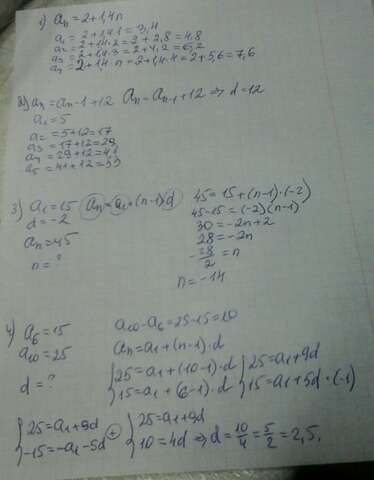 1) an = 2+1,4n
a1 = 2+1,4·1 = 3,4
a2 = 2+1,4·2 = 2+2,8 = 4,8
a3 = 2+1,4·3 = 2+4,2 = 6,2
a4 = 2+1,4·n = 2+1,4·4 = 2+5,6 = 7,6
2) an = an-1+12 an = an-1+12 ⇒ d=12
a1 = 5
a2 = 5+12=17
a3 = 17+12=29
a4 = 29+12=41
a5 = 41+12=53
3) a1=15 an=a1+(n-1)d
d = -2
an=45
n = ?
45 = 15+(n-1)·(-2)
45-15 = (-2)(n-1)
30 = -2n+2
28 = -2n
-28/2 = n
n = -14
4) a6=15 a10-a6=25-15=10
a10=25 an=a1+(n-1)·d
d = ? {25=a1+(10-1)·d {25=a1+9d
{15=a1+(6-1)·d {15=a1+5d ·(-1)
{25=a1+9d {25=a1+9d
{-15=-a1-5d (+) {10=4d ⇒ d=10/4=5/2=2,5.